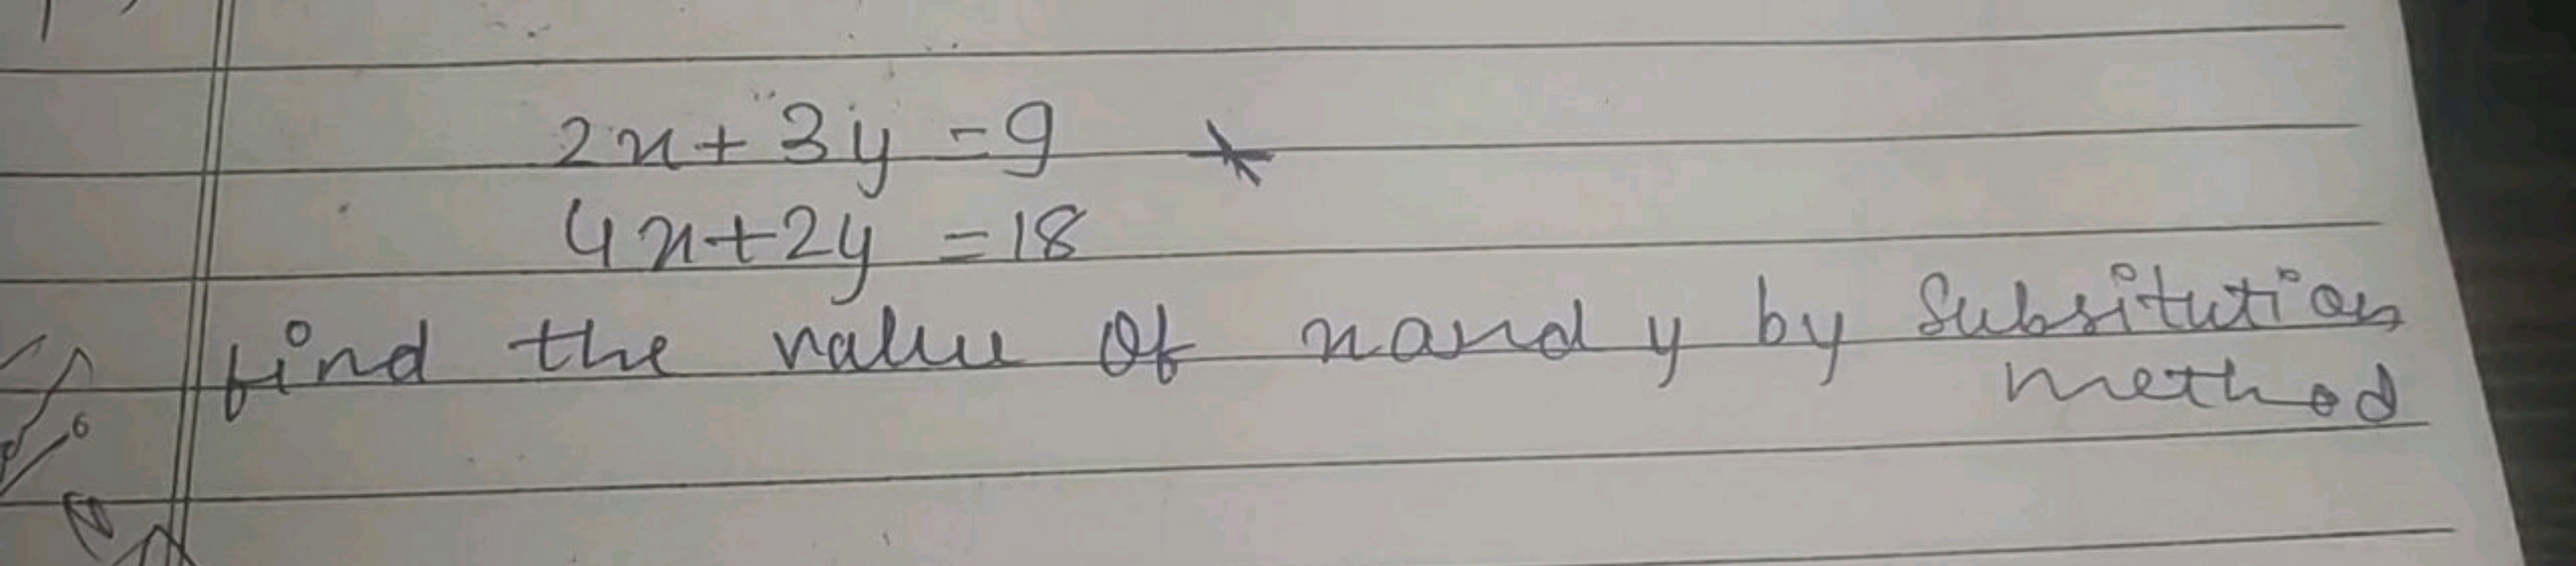 2x + 3y = 9
4x + 2y = 18
find the value of x and y by Subsitution
method
6